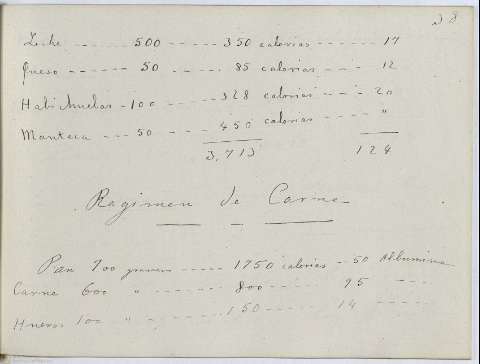 38
Leche ------- 500 ------ 350 calorias ------ 17
Queso ------ 50 ----- 85 calorias ------ 12
Habichuelas - 100 ---- 328 calorias ----- 20
Manteca --- 50 ---- 450 calorias ----- "
3,713 124
Ragimen de Carne
Pan 700 gramos ----- 1750 calorias -- 50 Albumina
Carne 600 " ------- 800 ----- 95 ---
Huevos 100 " ------- 150 ----- 14 -----